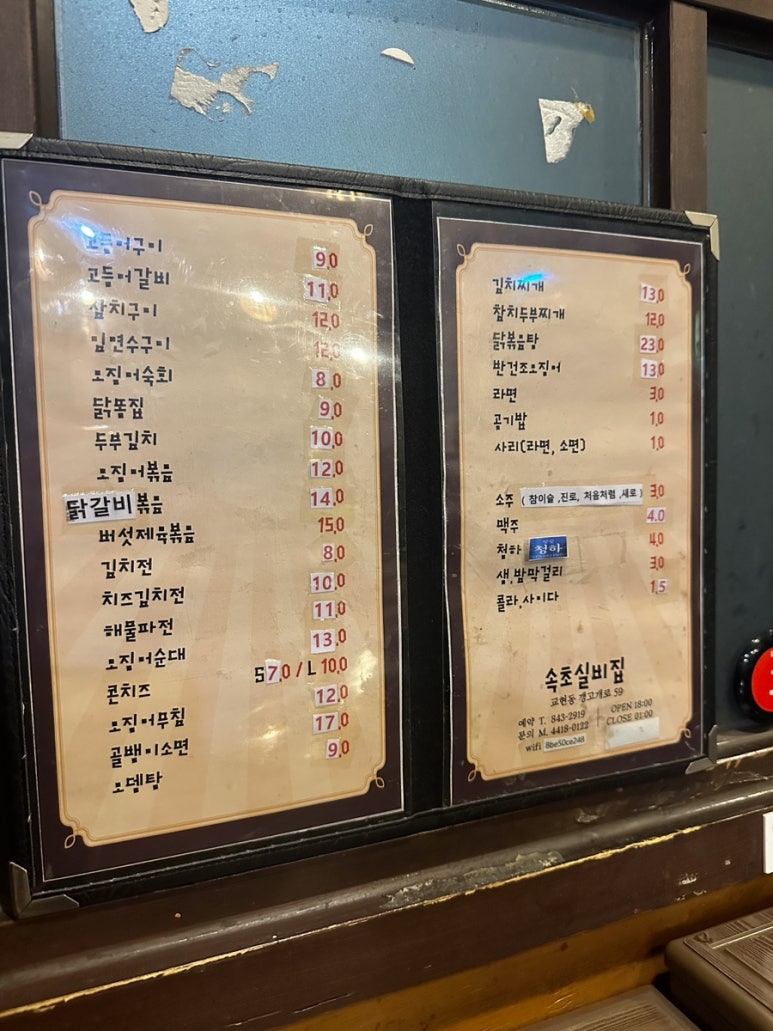 고등어구이 9.0
고등어갈비 11.0
삼치구이 12.0
임연수구이 12.0
오징어숙회 8.0
닭똥집 9.0
두부김치 10.0
오징어볶음 12.0
닭갈비볶음 14.0
버섯제육볶음 15.0
김치전 8.0
치즈김치전 10.0
해물파전 11.0
오징어순대 13.0
콘치즈 S7.0 / L 10.0
오징어무침 12.0
골뱅이소면 17.0
오뎅탕 9.0
김치찌개 13.0
참치두부찌개 12.0
닭볶음탕 23.0
반건조오징어 13.0
라면 3.0
공기밥 1.0
사리(라면, 소면) 1.0
소주 ( 참이슬 ,진로, 처음처럼 ,새로 ) 3.0
맥주 4.0
청하 청하 4.0
생,밤막걸리 3.0
콜라,사이다 1.5
속초실비집
교현동 갱고개로 59
예약 T. 843-2919 OPEN 18:00
문의 M. 4418-0122 CLOSE 01:00
wifi 8be50ce248